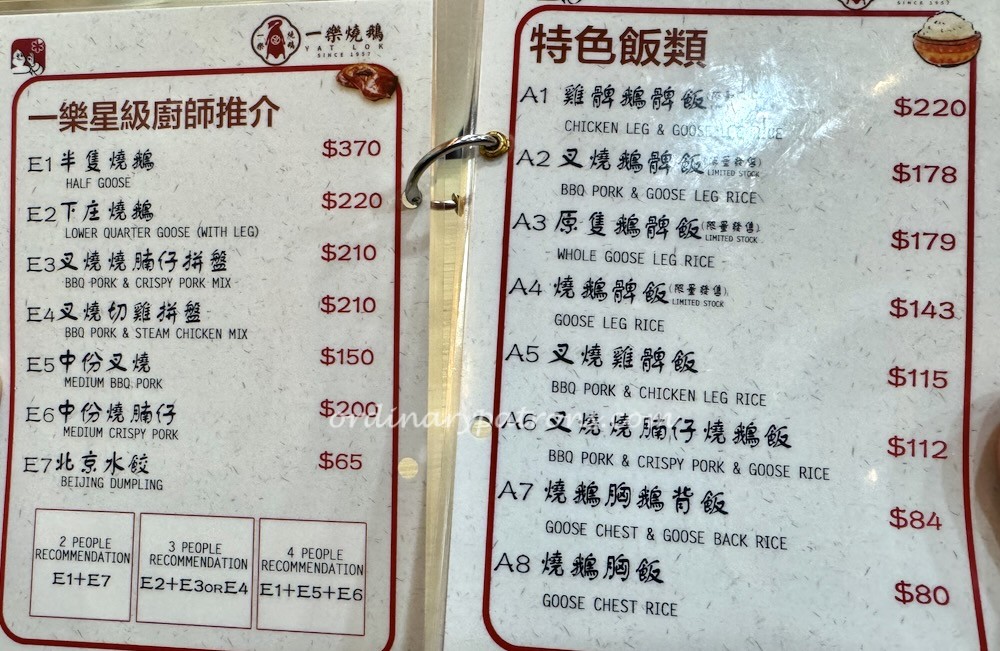 一樂 燒鵝
一樂燒鵝
YAT LOK
SINCE 1957
一樂星級廚師推介
E1 半隻燒鵝 $370
HALF GOOSE
E2 下庄燒鵝 $220
LOWER QUARTER GOOSE (WITH LEG)
E3 叉燒燒腩仔拼盤 $210
BBQ PORK & CRISPY PORK MIX
E4 叉燒切雞拼盤 $210
BBQ PORK & STEAM CHICKEN MIX
E5 中份叉燒 $150
MEDIUM BBQ PORK
E6 中份燒腩仔 $200
MEDIUM CRISPY PORK
E7 北京水餃 $65
BEIJING DUMPLING
2 PEOPLE
RECOMMENDATION
E1+E7
3 PEOPLE
RECOMMENDATION
E2+E3 OR E4
4 PEOPLE
RECOMMENDATION
E1+E5+E6
SINCE 1957
特色飯類
A1 雞髀鵝髀飯 $220
CHICKEN LEG & GOOSE LEG RICE
A2 叉燒鵝髀飯 (限量發售) $178
LIMITED STOCK
BBQ PORK & GOOSE LEG RICE
A3 原隻鵝髀飯 (限量發售) $179
LIMITED STOCK
WHOLE GOOSE LEG RICE
A4 燒鵝髀飯 (限量發售) $143
LIMITED STOCK
GOOSE LEG RICE
A5 叉燒雞髀飯 $115
BBQ PORK & CHICKEN LEG RICE
A6 叉燒燒腩仔燒鵝飯 $112
BBQ PORK & CRISPY PORK & GOOSE RICE
A7 燒鵝胸鵝背飯 $84
GOOSE CHEST & GOOSE BACK RICE
A8 燒鵝胸飯 $80
GOOSE CHEST RICE
ordinarypatrons.com